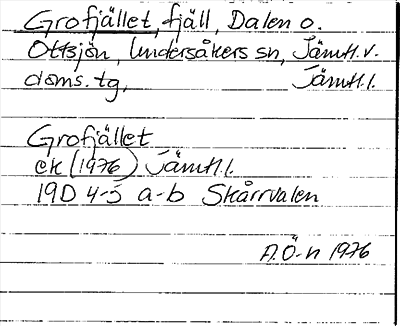 Grofjället, fjäll, Dalen o.
Ottsjön, Undersåkers sn, Jämtl.v.
doms.tg, Jämtl.l.
Grofjället
ek (1976) Jämtl.l.
19D 4-5 a-b Skårrvalen
A.Ö-n 1976